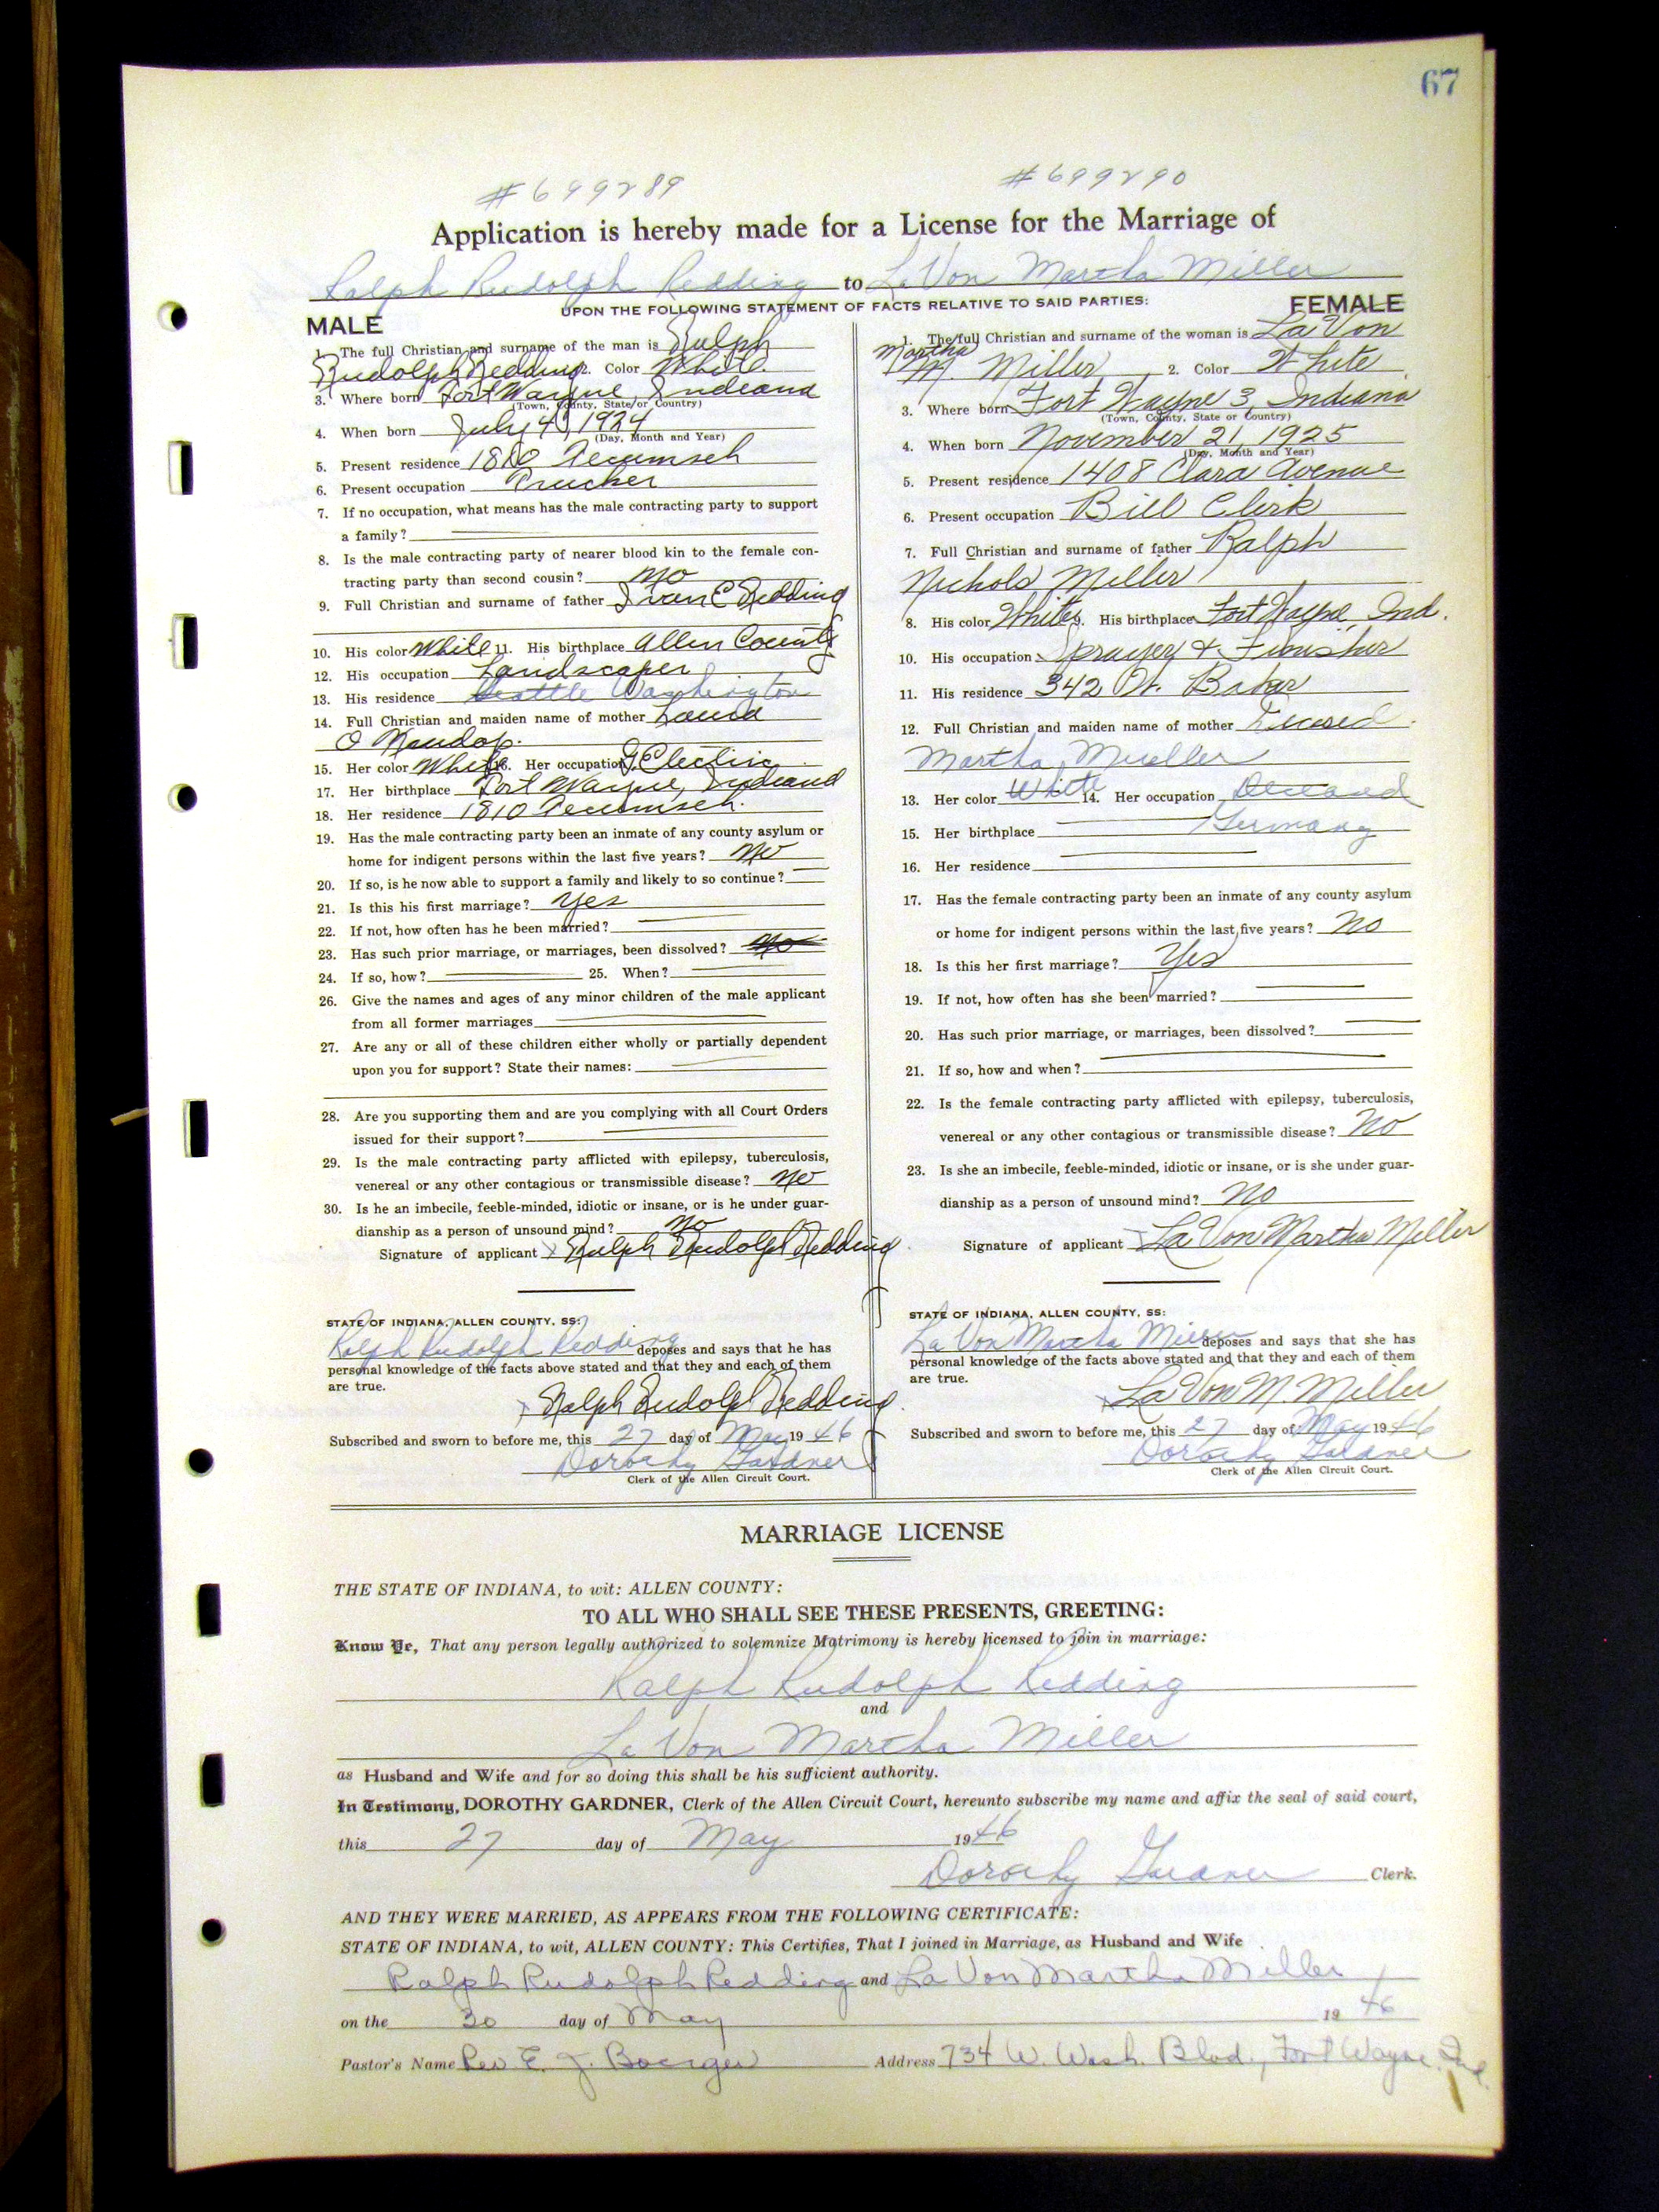 67
#699289 #699290
Application is hereby made for a License for the Marriage of
Ralph Rudolph Redding to La Von Martha Miller
UPON THE FOLLOWING STATEMENT OF FACTS RELATIVE TO SAID PARTIES:
MALE
1. The full Christian and surname of the man is Ralph
Rudolph Redding 2. Color White.
3. Where born Fort Wayne Indiana
(Town, County, State or Country)
4. When born July 4, 1924
(Day, Month and Year)
5. Present residence 1810 Tecumseh
6. Present occupation Trucker
7. If no occupation, what means has the male contracting party to support
a family?
8. Is the male contracting party of nearer blood kin to the female con-
tracting party than second cousin? No
9. Full Christian and surname of father Ivan C Redding
10. His color White 11. His birthplace Allen County
12. His occupation Landscaper
13. His residence Seattle Washington
14. Full Christian and maiden name of mother
O
15. Her color White 16. Her occupation G Electric
17. Her birthplace Fort Wayne, Indiana
18. Her residence 1810 Tecumseh.
19. Has the male contracting party been an inmate of any county asylum or
home for indigent persons within the last five years? No
20. If so, is he now able to support a family and likely to so continue?
21. Is this his first marriage? Yes
22. If not, how often has he been married?
23. Has such prior marriage, or marriages, been dissolved? No
24. If so, how? 25. When?
26. Give the names and ages of any minor children of the male applicant
from all former marriages
27. Are any or all of these children either wholly or partially dependent
upon you for support? State their names:
28. Are you supporting them and are you complying with all Court Orders
issued for their support?
29. Is the male contracting party afflicted with epilepsy, tuberculosis,
venereal or any other contagious or transmissible disease? No
30. Is he an imbecile, feeble-minded, idiotic or insane, or is he under guar-
dianship as a person of unsound mind? No
Signature of applicant x Ralph Rudolph Redding
STATE OF INDIANA, ALLEN COUNTY, SS:
Ralph Rudolph Redding deposes and says that he has
personal knowledge of the facts above stated and that they and each of them
are true.
x Ralph Rudolph Redding
Subscribed and sworn to before me, this 27 day of May 1946
Dorothy Gardner
Clerk of the Allen Circuit Court.
FEMALE
1. The full Christian and surname of the woman is La Von
Martha
M. Miller 2. Color White
3. Where born Fort Wayne 3, Indiana
(Town, County, State or Country)
4. When born November 21, 1925
(Day, Month and Year)
5. Present residence 1408 Clara Avenue
6. Present occupation Bill Clerk
7. Full Christian and surname of father Ralph
Nichols Miller
8. His color White 9. His birthplace Fort Wayne, Ind.
10. His occupation Sprayer & Finisher
11. His residence 342 W. Baker
12. Full Christian and maiden name of mother
Martha Mueller
13. Her color White 14. Her occupation Deceased
15. Her birthplace Germany
16. Her residence
17. Has the female contracting party been an inmate of any county asylum
or home for indigent persons within the last five years? No
18. Is this her first marriage? Yes
19. If not, how often has she been married?
20. Has such prior marriage, or marriages, been dissolved?
21. If so, how and when?
22. Is the female contracting party afflicted with epilepsy, tuberculosis,
venereal or any other contagious or transmissible disease? No
23. Is she an imbecile, feeble-minded, idiotic or insane, or is she under guar-
dianship as a person of unsound mind? No
Signature of applicant x La Von Martha Miller
STATE OF INDIANA, ALLEN COUNTY, SS:
La Von Martha Miller deposes and says that she has
personal knowledge of the facts above stated and that they and each of them
are true.
x La Von M. Miller
Subscribed and sworn to before me, this 27 day of May 1946
Dorothy Gardner
Clerk of the Allen Circuit Court.
MARRIAGE LICENSE
THE STATE OF INDIANA, to wit: ALLEN COUNTY:
TO ALL WHO SHALL SEE THESE PRESENTS, GREETING:
Know Ye, That any person legally authorized to solemnize Matrimony is hereby licensed to join in marriage:
Ralph Rudolph Redding
and
La Von Martha Miller
as Husband and Wife and for so doing this shall be his sufficient authority.
In Testimony, DOROTHY GARDNER, Clerk of the Allen Circuit Court, hereunto subscribe my name and affix the seal of said court,
this 27 day of May 1946
Dorothy Gardner Clerk.
AND THEY WERE MARRIED, AS APPEARS FROM THE FOLLOWING CERTIFICATE:
STATE OF INDIANA, to wit, ALLEN COUNTY: This Certifies, That I joined in Marriage, as Husband and Wife
Ralph Rudolph Redding and La Von Martha Miller
on the 30 day of May 1946
Pastor's Name Rev E. J. Boerger Address 734 W. Wash. Blvd., Fort Wayne, Ind.